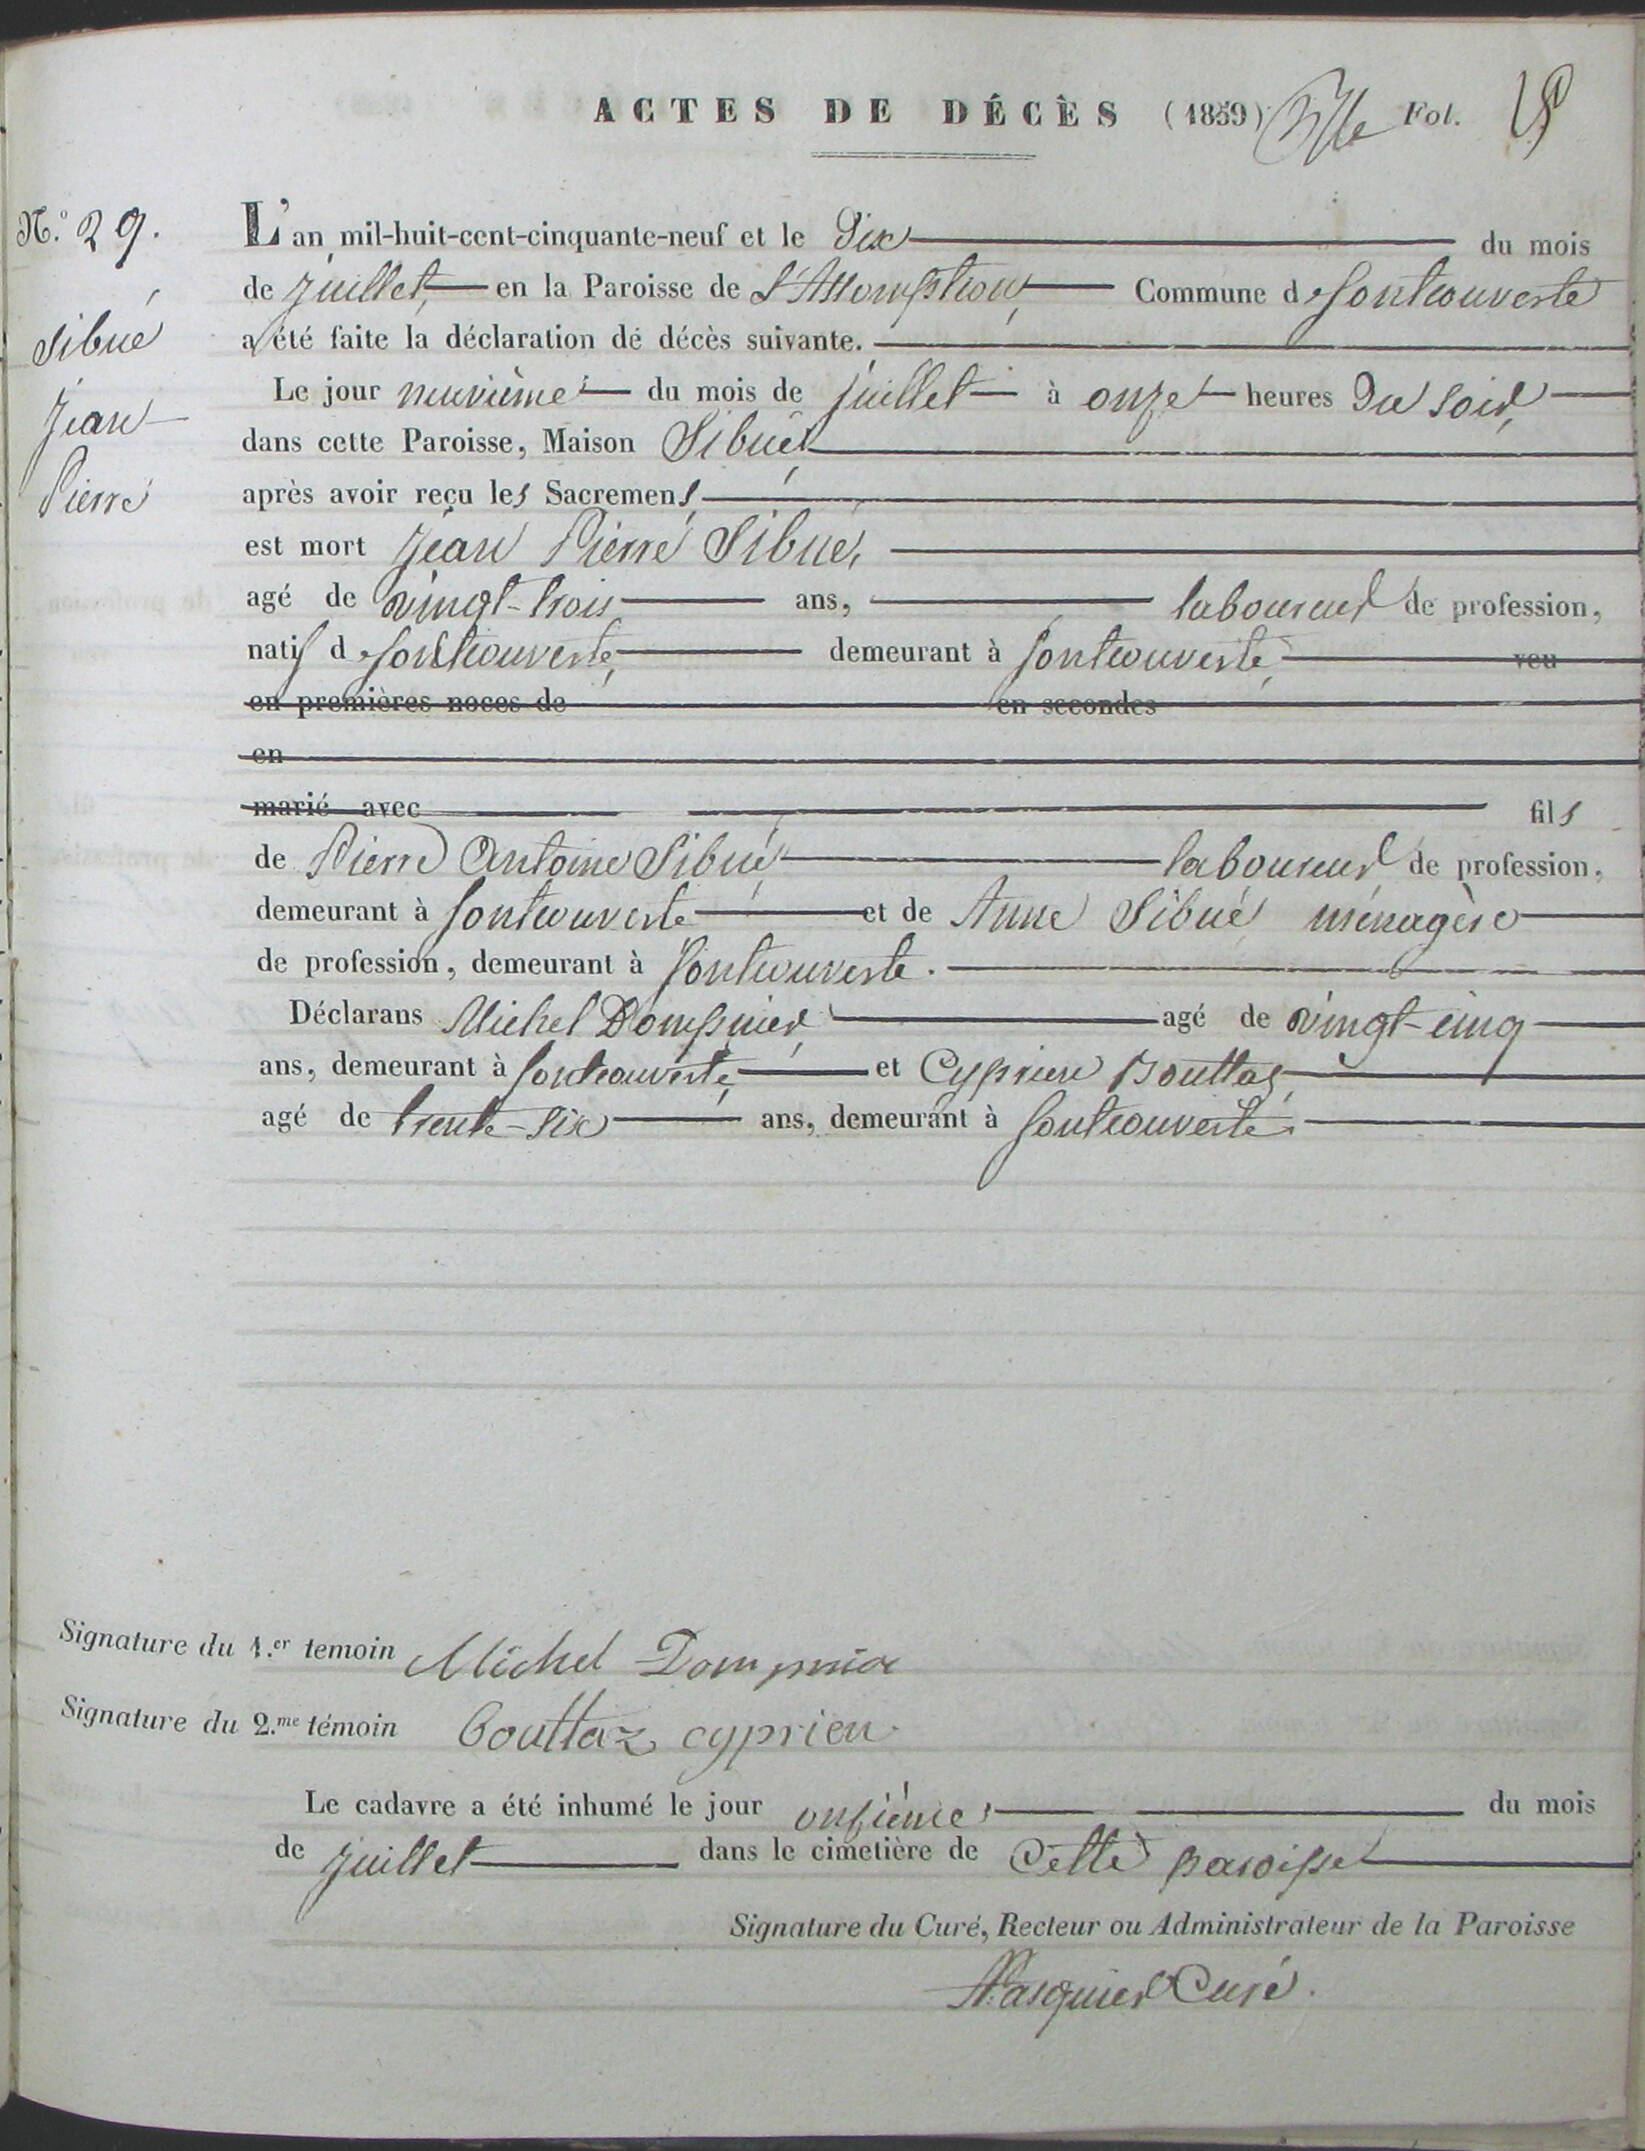 ACTES DE DÉCÈS (1859) Fol.
N.º 29. L'an mil-huit-cent-cinquante-neuf et le Dix du mois
de Juillet, en la Paroisse de L'Assomption, Commune de fontcouverte
a été faite la déclaration de décès suivante.
Sibué
Jean
Pierre
Le jour neuvième du mois de juillet à onze heures Du soir,
dans cette Paroisse, Maison Sibué
après avoir reçu les Sacremens,
est mort Jean Pierre Sibué,
agé de vingt-trois ans, laboureur de profession,
natif de fontcouverte, demeurant à fontcouverte, veu
en premières noces de en secondes
en
marié avec fils
de Pierre Antoine Sibué, laboureur de profession,
demeurant à fontcouverte et de Anne Sibué ménagère
de profession, demeurant à fontcouverte.
Déclarans Michel Dompnier, agé de vingt-cinq
ans, demeurant à fontcouverte, et Cyprien Bouttaz,
agé de trente-six ans, demeurant à fontcouverte.
Signature du 1.er temoin Michel Dompnier
Signature du 2.me témoin Bouttaz cyprien
Le cadavre a été inhumé le jour onzième du mois
de juillet dans le cimetière de Cette paroisse
Signature du Curé, Recteur ou Administrateur de la Paroisse
Pasquier Curé.